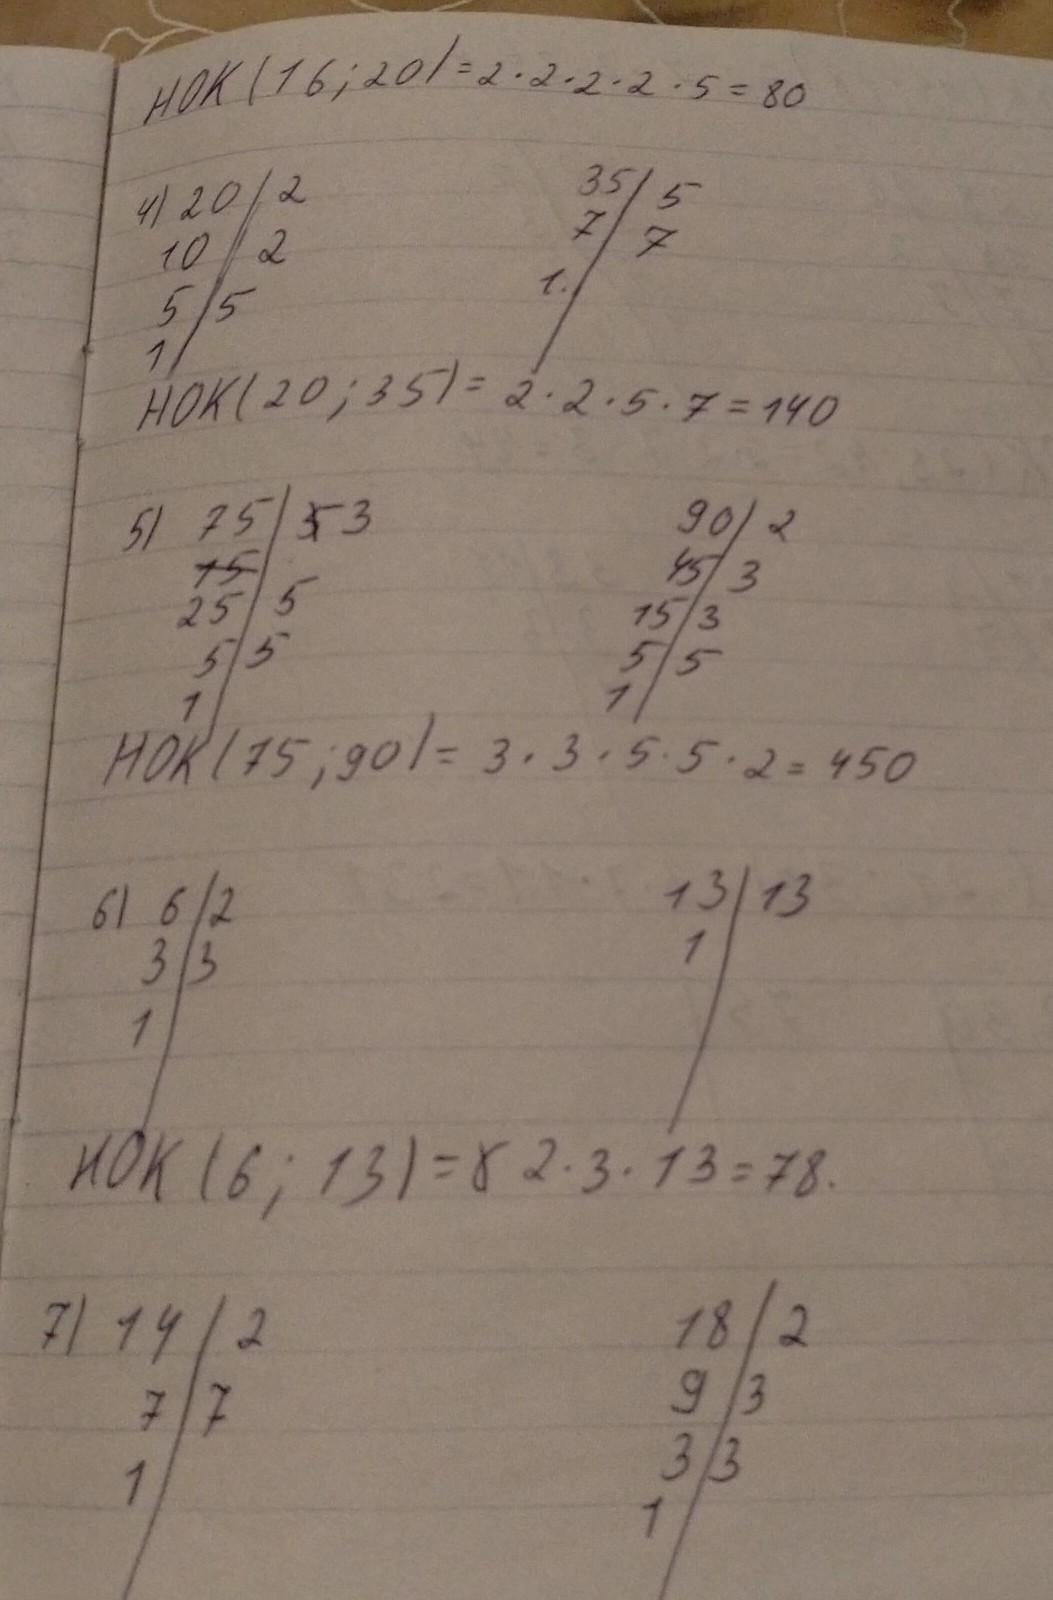 НОК(16;20)=2·2·2·2·5=80
4) 20 2 35 5
10 2 7 7
5 5 1.
1
НОК(20;35)=2·2·5·7=140
5) 75 3 90 2
15 45 3
25 5 15 3
5 5 5 5
1 1
НОК(75;90)=3·3·5·5·2=450
6) 6 2 13 13
3 3 1
1
НОК(6;13)=2·3·13=78.
7) 14 2 18 2
7 7 9 3
1 3 3
1